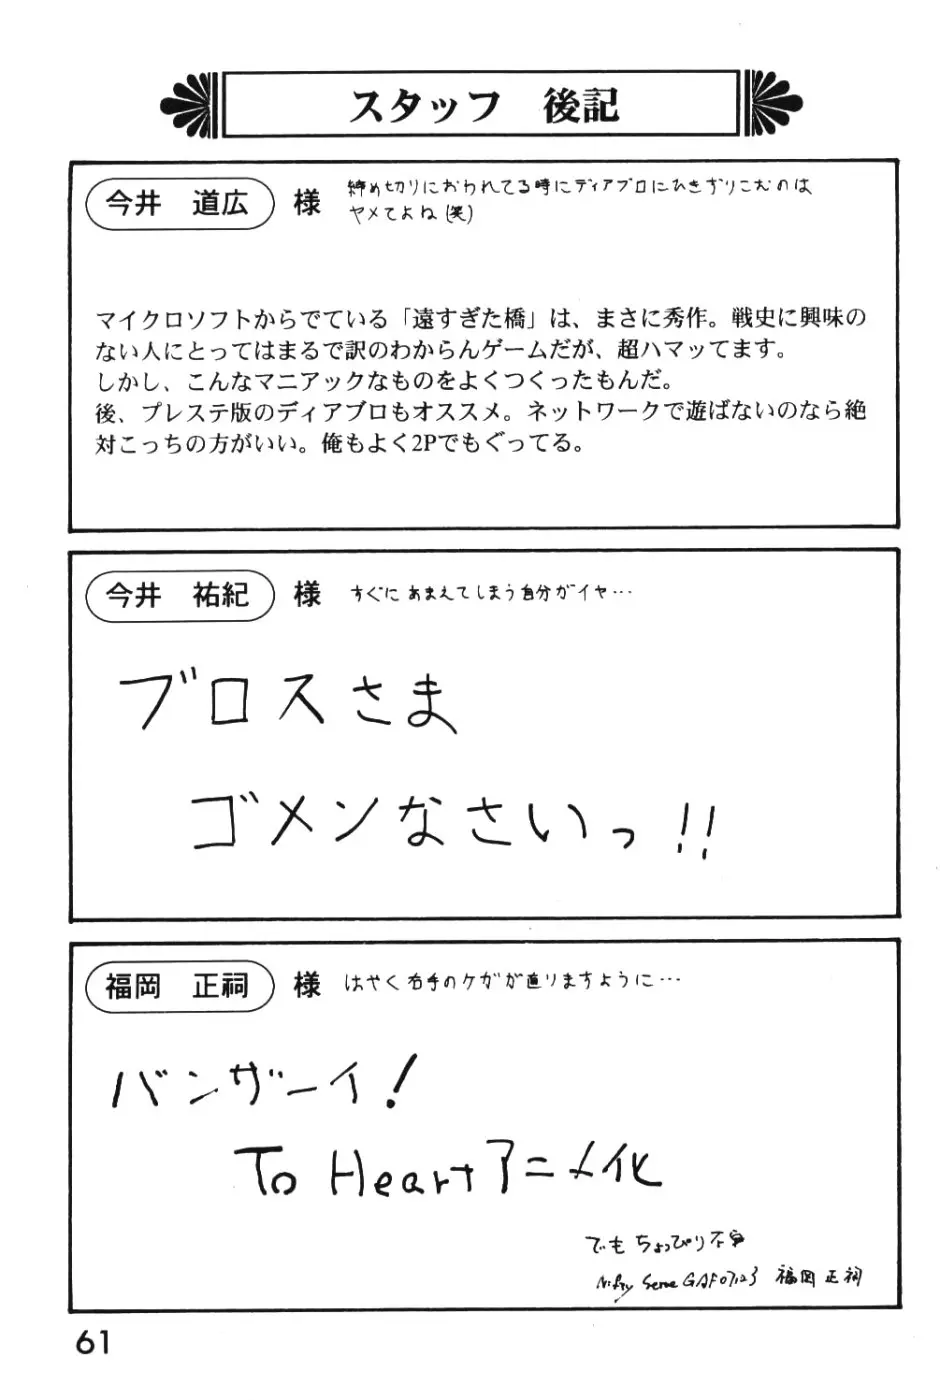 スタッフ 後記
今井 道広 様
締め切りにおわれてる時にディアブロにひきずりこむのは
ヤメてよね(笑)
マイクロソフトからでている「遠すぎた橋」は、まさに秀作。戦史に興味の
ない人にとってはまるで訳のわからんゲームだが、超ハマッてます。
しかし、こんなマニアックなものをよくつくったもんだ。
後、プレステ版のディアブロもオススメ。ネットワークで遊ばないのなら絶
対こっちの方がいい。俺もよく2Pでもぐってる。
今井 祐紀 様
すぐにあまえてしまう自分がイヤ…
ブロスさま
ゴメンなさいっ!!
福岡 正祠 様
はやく右手のケガが直りますように…
バンザーイ!
To Heartアニメ化
でもちょっぴり不安
福岡 正祠
61